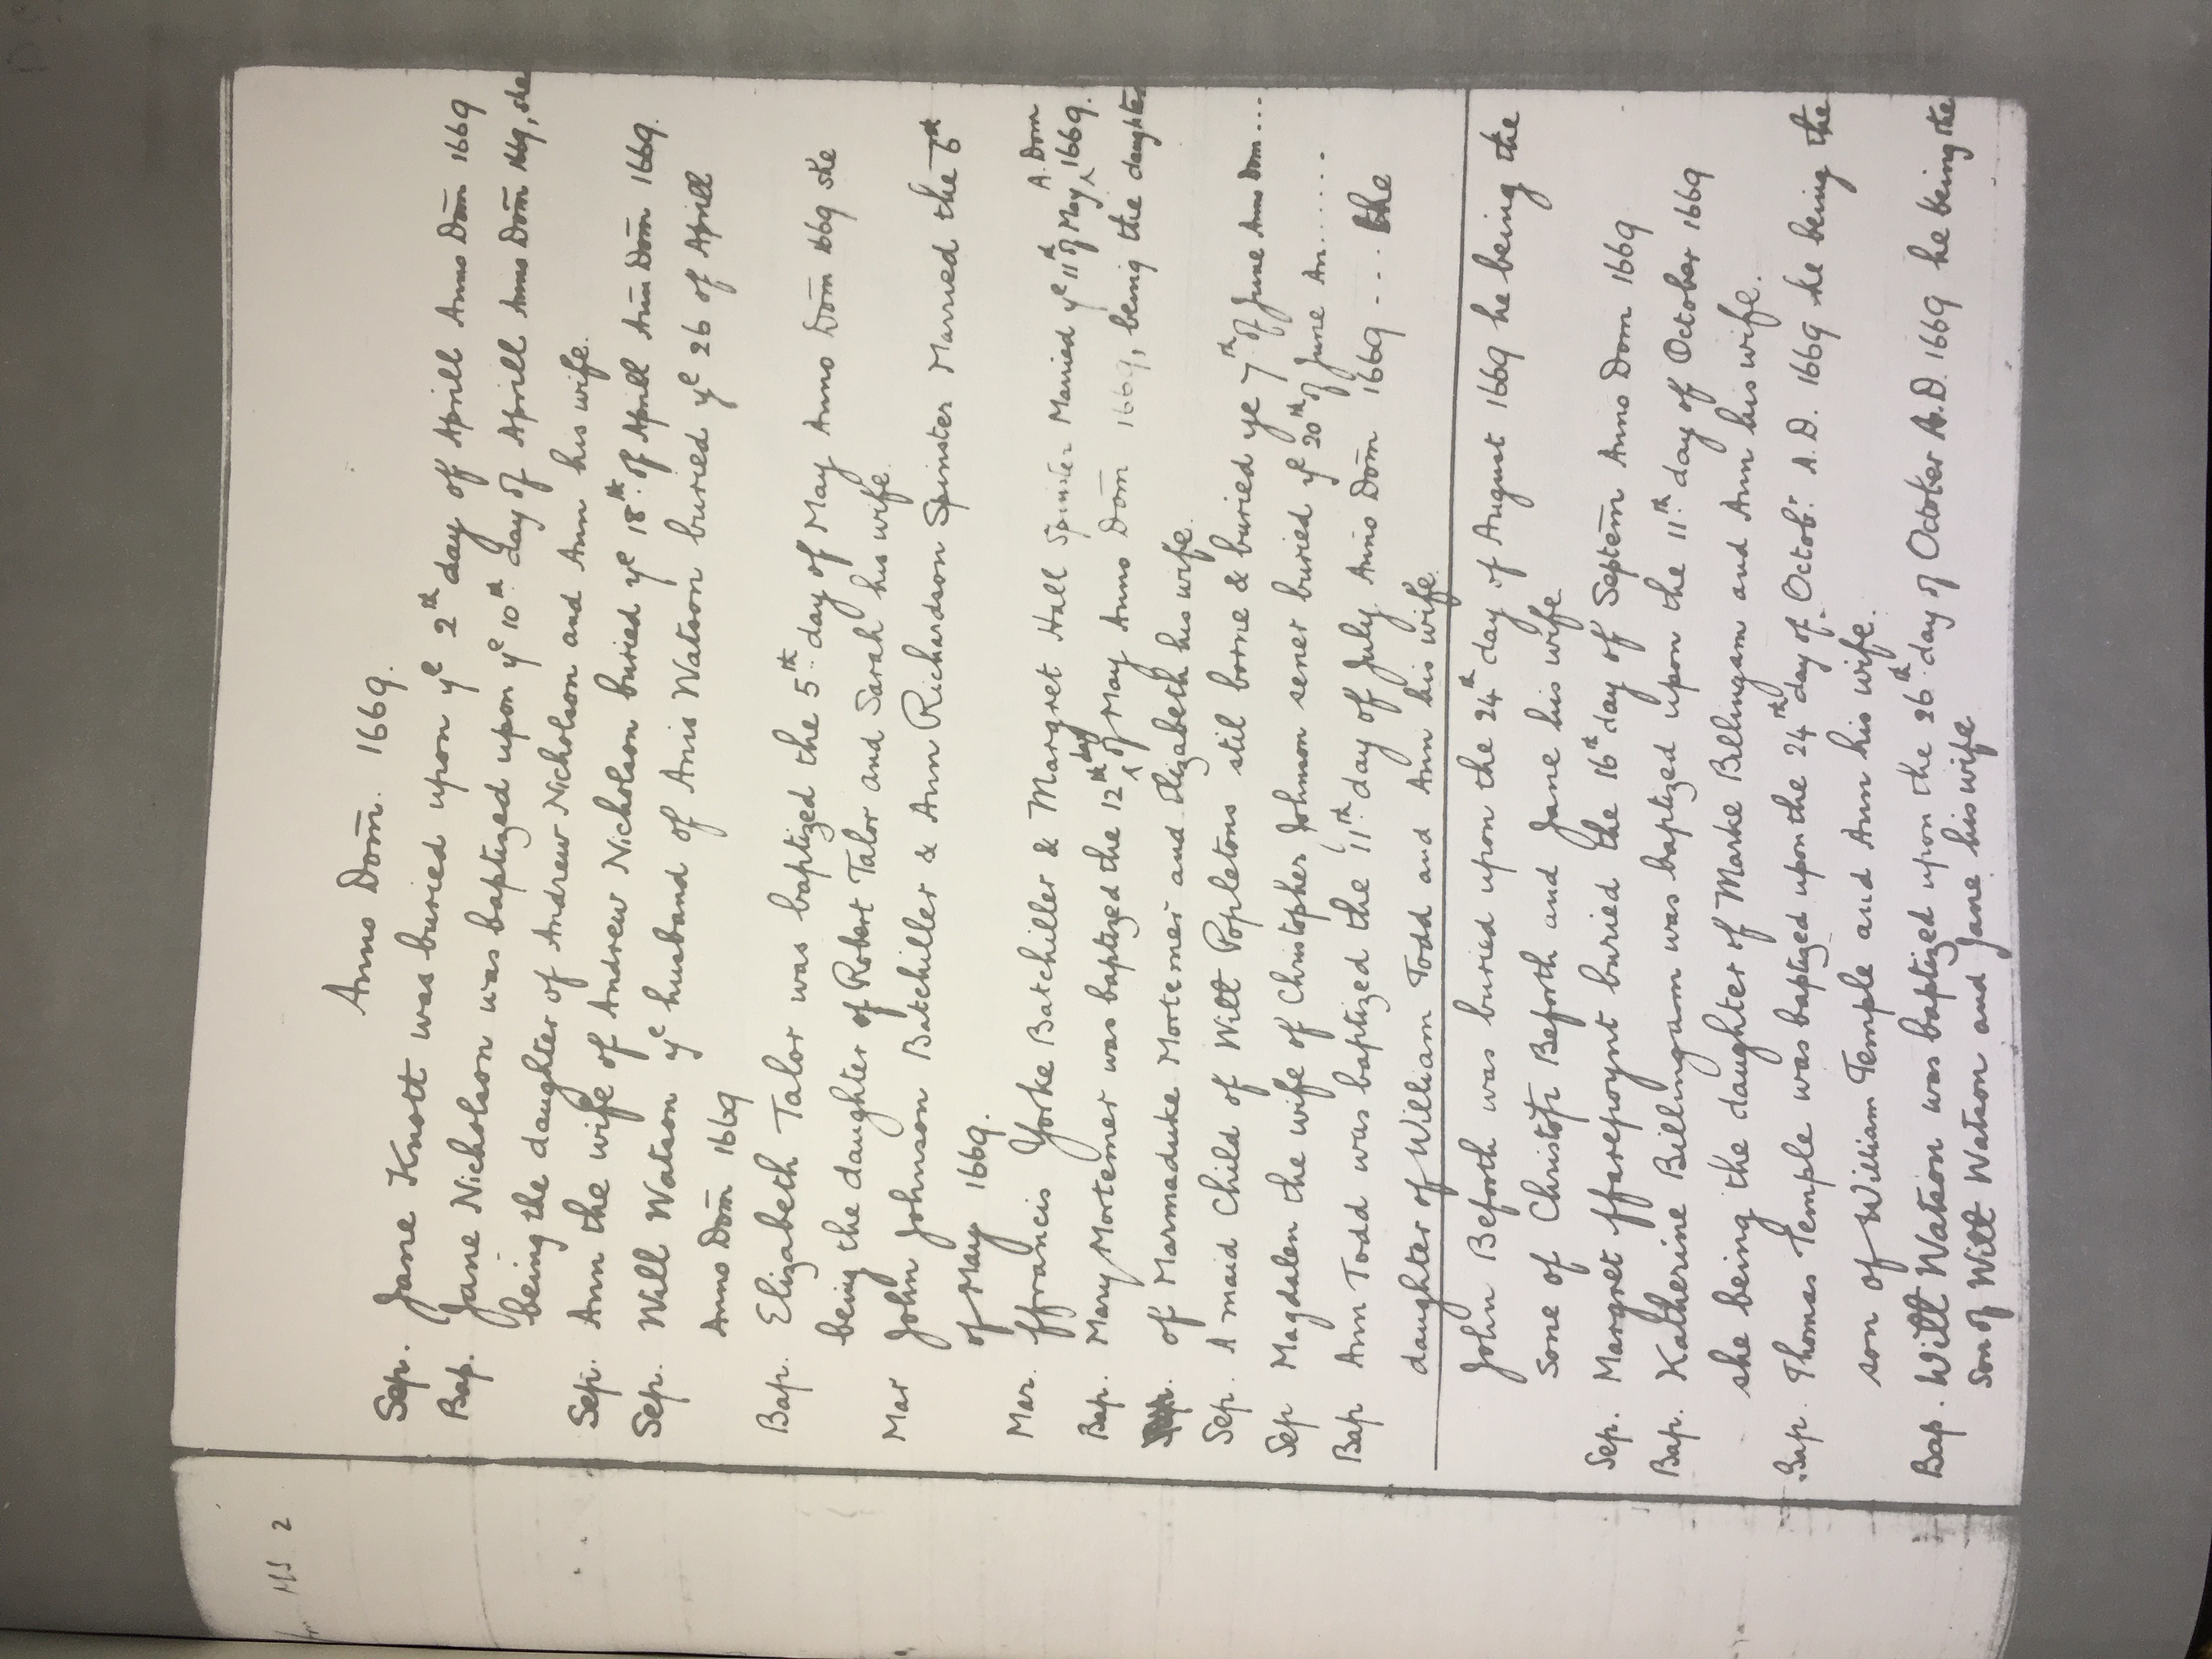 MS 2
Anno Dom̄. 1669.
Sep. Jane Knott was buried upon yᵉ 2ᵗʰ day of Aprill Anno Dom̄ 1669
Bap. Jane Nicholson was baptized upon yᵉ 10ᵗʰ day of Aprill Anno Dom̄ 1669, she
being the daughter of Andrew Nicholson and Ann his wife.
Sep. Ann the wife of Andrew Nicholson buried yᵉ 18ᵗʰ of Aprill Ann̄ Dom̄ 1669.
Sep. Will Watson yᵉ husband of Anis Watson buried yᵉ 26 of Aprill
Anno Dom̄ 1669
Bap. Elizabeth Talor was baptized the 5ᵗʰ day of May Anno Dom̄ 1669 she
being the daughter of Robert Talor and Sarah his wife.
Mar John Johnson Batchiller & Ann Richardson Spinster Married the 6ᵗʰ
of May 1669.
Mar. ffrancis Yorke Batchiller & Margret Hall Spinster Married yᵉ 11ᵗʰ of May A. Dom 1669.
Bap. Mary Mortemer was baptized the 12ᵗʰ day of May Anno Dom̄ 1669, being the daughter
of Marmaduke Mortemer and Elizabeth his wife.
Sep. A maid Child of Witt Popletons stil borne & buried ye 7ᵗʰ of June Anno Dom....
Sep Magdalen the wife of Christopher Johnson sener buried yᵉ 20ᵗʰ of June An.......
Bap Ann Todd was baptized the 11ᵗʰ day of July Anno Dom̄ 1669 ... the
daughter of William Todd and Ann his wife.
John Beforth was buried upon the 24ᵗʰ day of August 1669 he being the
sone of Christop Beforth and Jane his wife.
Sep. Margret ffarepoynt buried the 16ᵗʰ day of Septem̄ Anno Dom 1669
Bap. Katherine Billingam was baptized upon the 11ᵗʰ day of October 1669
she being the daughter of Marke Billingam and Ann his wife.
Bap. Thomas Temple was baptized upon the 24ᵗʰ day of Octob: A.D. 1669 he being the
son of William Temple and Ann his wife.
Bap. Witt Watson was baptized upon the 26ᵗʰ day of October A.D. 1669 he being the
son of Witt Watson and Jane his wife